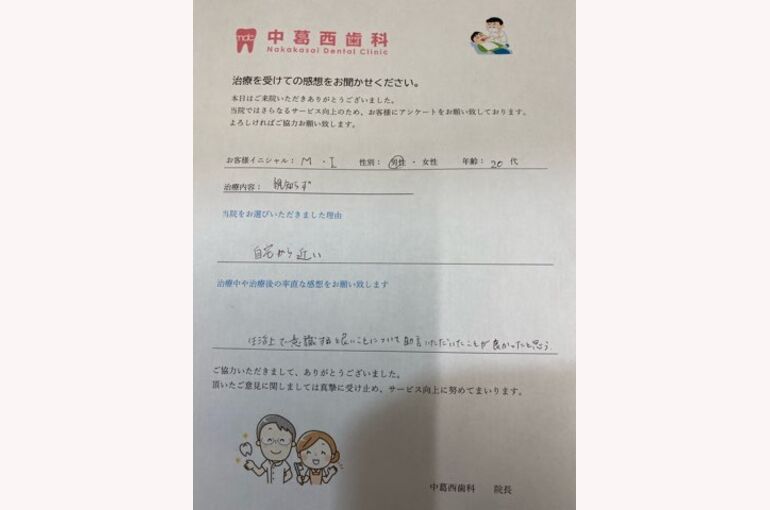 ndc 中葛西歯科
Nakakasai Dental Clinic
治療を受けての感想をお聞かせください。
本日はご来院いただきありがとうございました。
当院ではさらなるサービス向上のため、お客様にアンケートをお願い致しております。
よろしければご協力お願い致します。
お客様イニシャル： M ・ I 性別： 男性 ・ 女性 年齢： 20 代
治療内容： 親知らず
当院をお選びいただきました理由
自宅から近い
治療中や治療後の率直な感想をお願い致します
生活上で意識すると良いことについて助言いただいたことが良かったと思う
ご協力いただきまして、ありがとうございました。
頂いたご意見に関しましては真摯に受け止め、サービス向上に努めてまいります。
中葛西歯科 院長